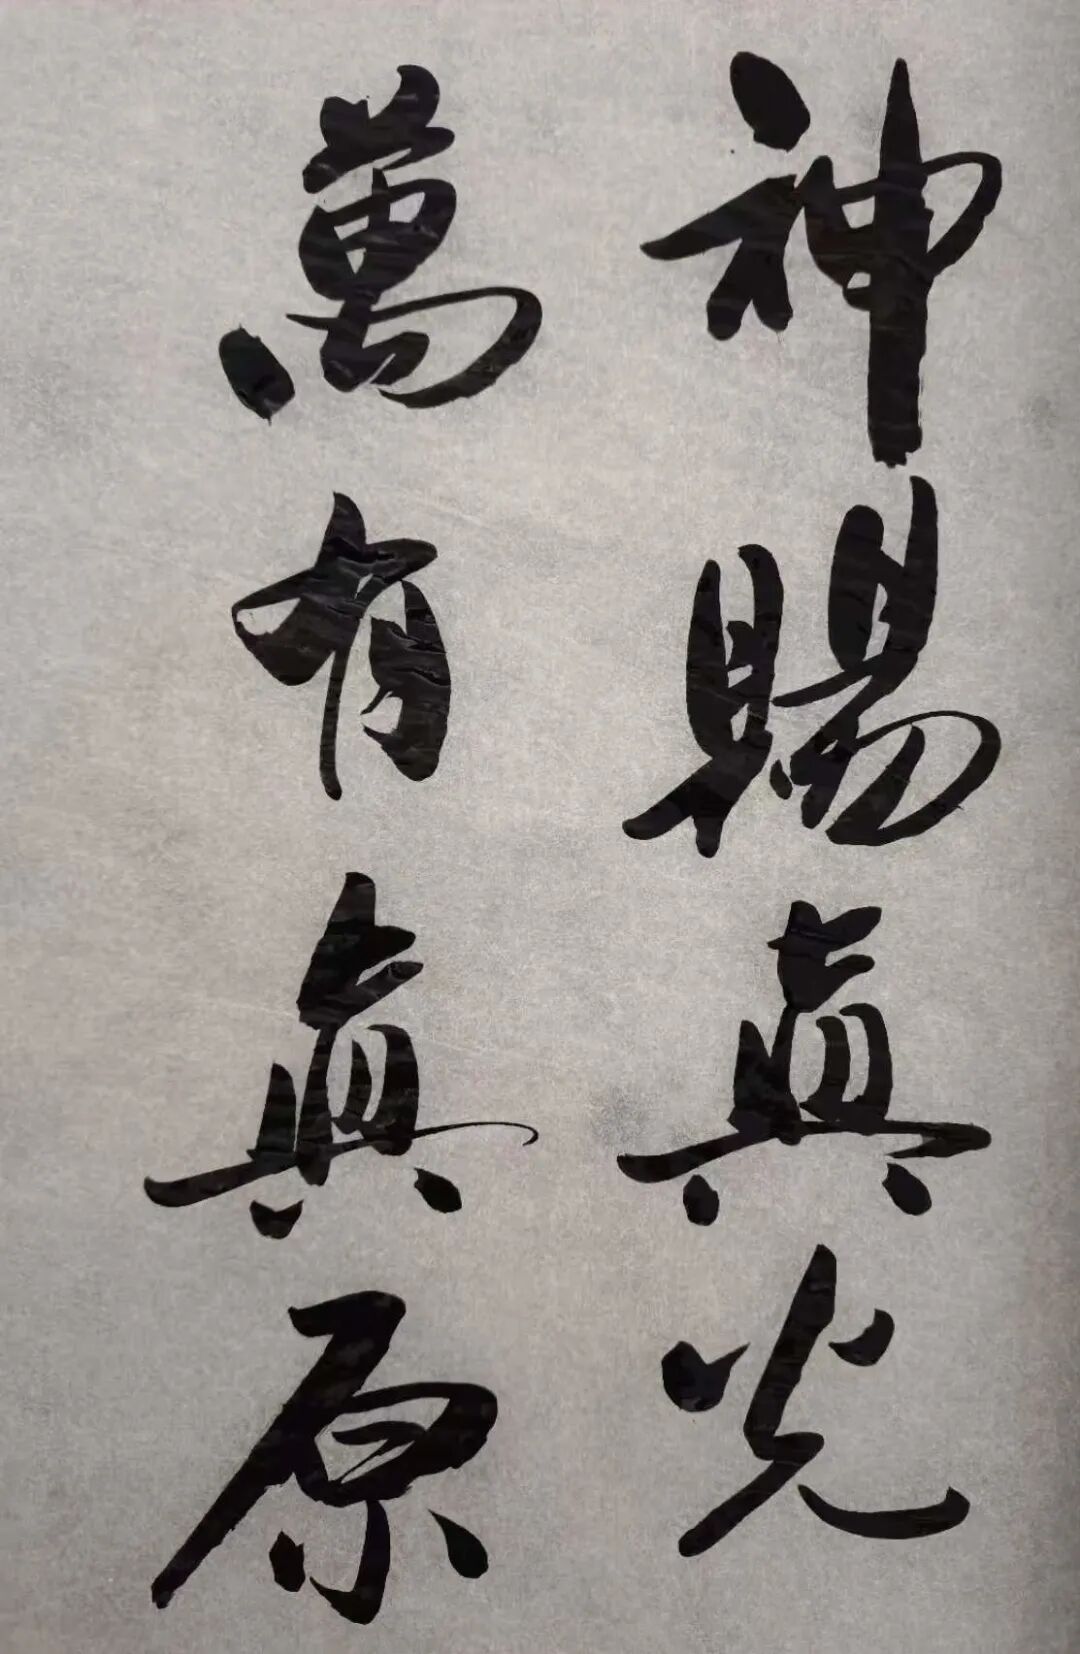 神賜真光
萬有真原